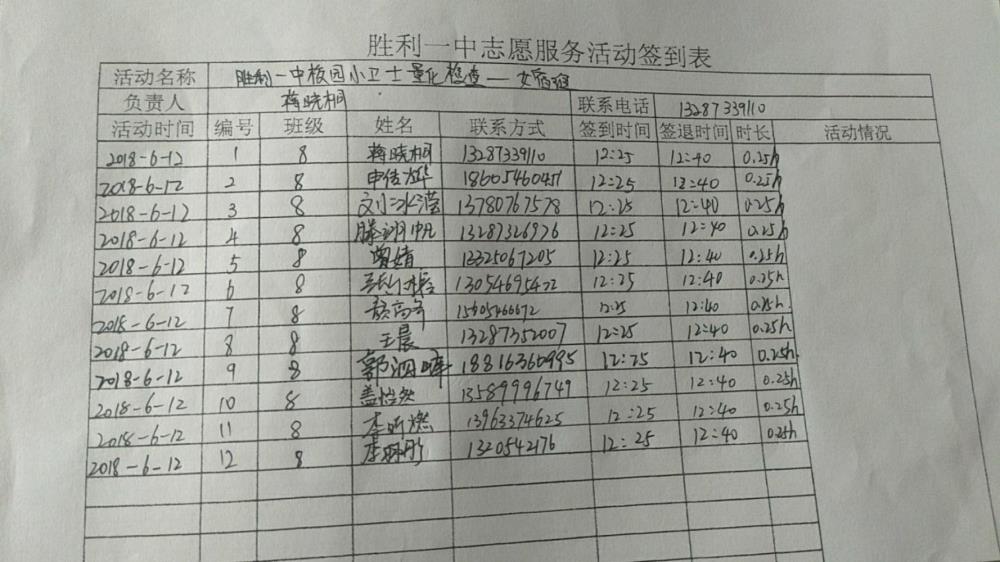 胜利一中志愿服务活动签到表
活动名称 胜利一中校园小卫士量化检查—女宿班
负责人 蒋晓桐 联系电话 13287339110
活动时间 编号 班级 姓名 联系方式 签到时间 签退时间 时长 活动情况
2018-6-12 1 8 蒋晓桐 13287339110 12:25 12:40 0.25h
2018-6-12 2 8 申倍华 18605460451 12:25 12:40 0.25h
2018-6-12 3 8 刘冰滢 13780767578 12:25 12:40 0.25h
2018-6-12 4 8 滕翊帆 13287326976 12:25 12:40 0.25h
2018-6-12 5 8 曾婧 13325067205 12:25 12:40 0.25h
2018-6-12 6 8 13054695422 12:25 12:40 0.25h
2018-6-12 7 8 15605466672 12:25 12:40 0.25h
2018-6-12 8 8 王晨 13287352007 12:25 12:40 0.25h
2018-6-12 9 8 郭泗晖 18816360995 12:25 12:40 0.25h
2018-6-12 10 8 盖怡然 13589996749 12:25 12:40 0.25h
2018-6-12 11 8 李昕燃 13963374625 12:25 12:40 0.25h
2018-6-12 12 8 1320542176 12:25 12:40 0.25h